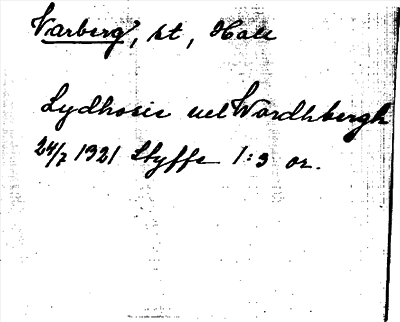 Varberg, st, Hall
Lydhosie uel Wardhbergh
24/7 1921 Styffe 1:3 or.